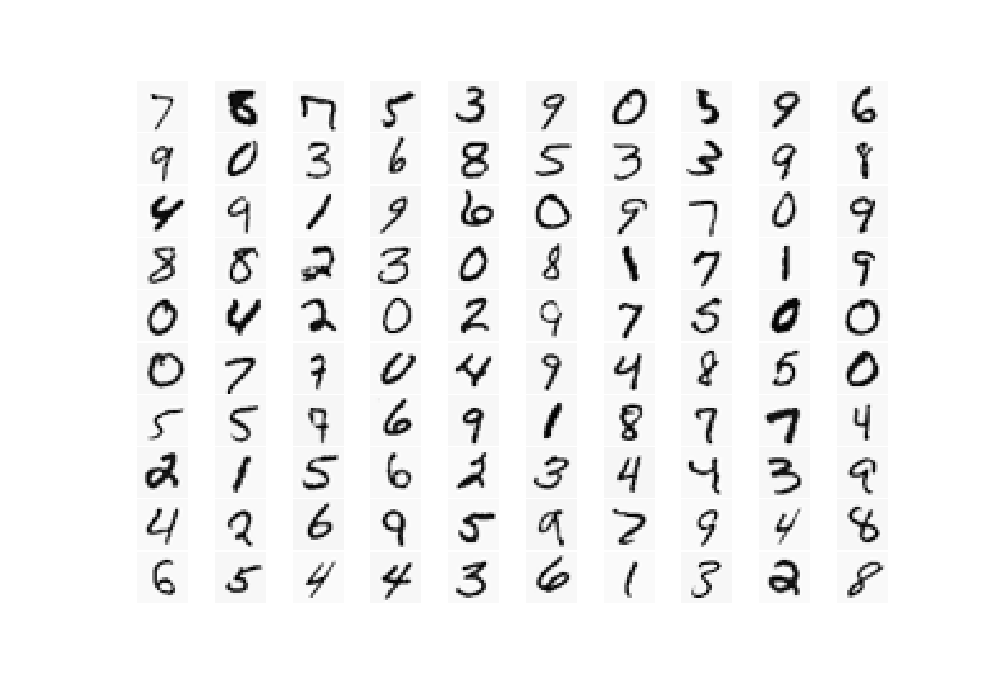 7 8 7 5 3 9 0 5 9 6
9 0 3 6 8 5 3 3 9 8
4 9 1 9 6 0 9 7 0 9
8 8 2 3 0 8 1 7 1 9
0 4 2 0 2 9 7 5 0 0
0 7 7 0 4 9 4 8 5 0
5 5 7 6 9 1 8 7 7 4
2 1 5 6 2 3 4 4 3 9
4 2 6 9 5 9 7 9 4 8
6 5 4 4 3 6 1 3 2 8